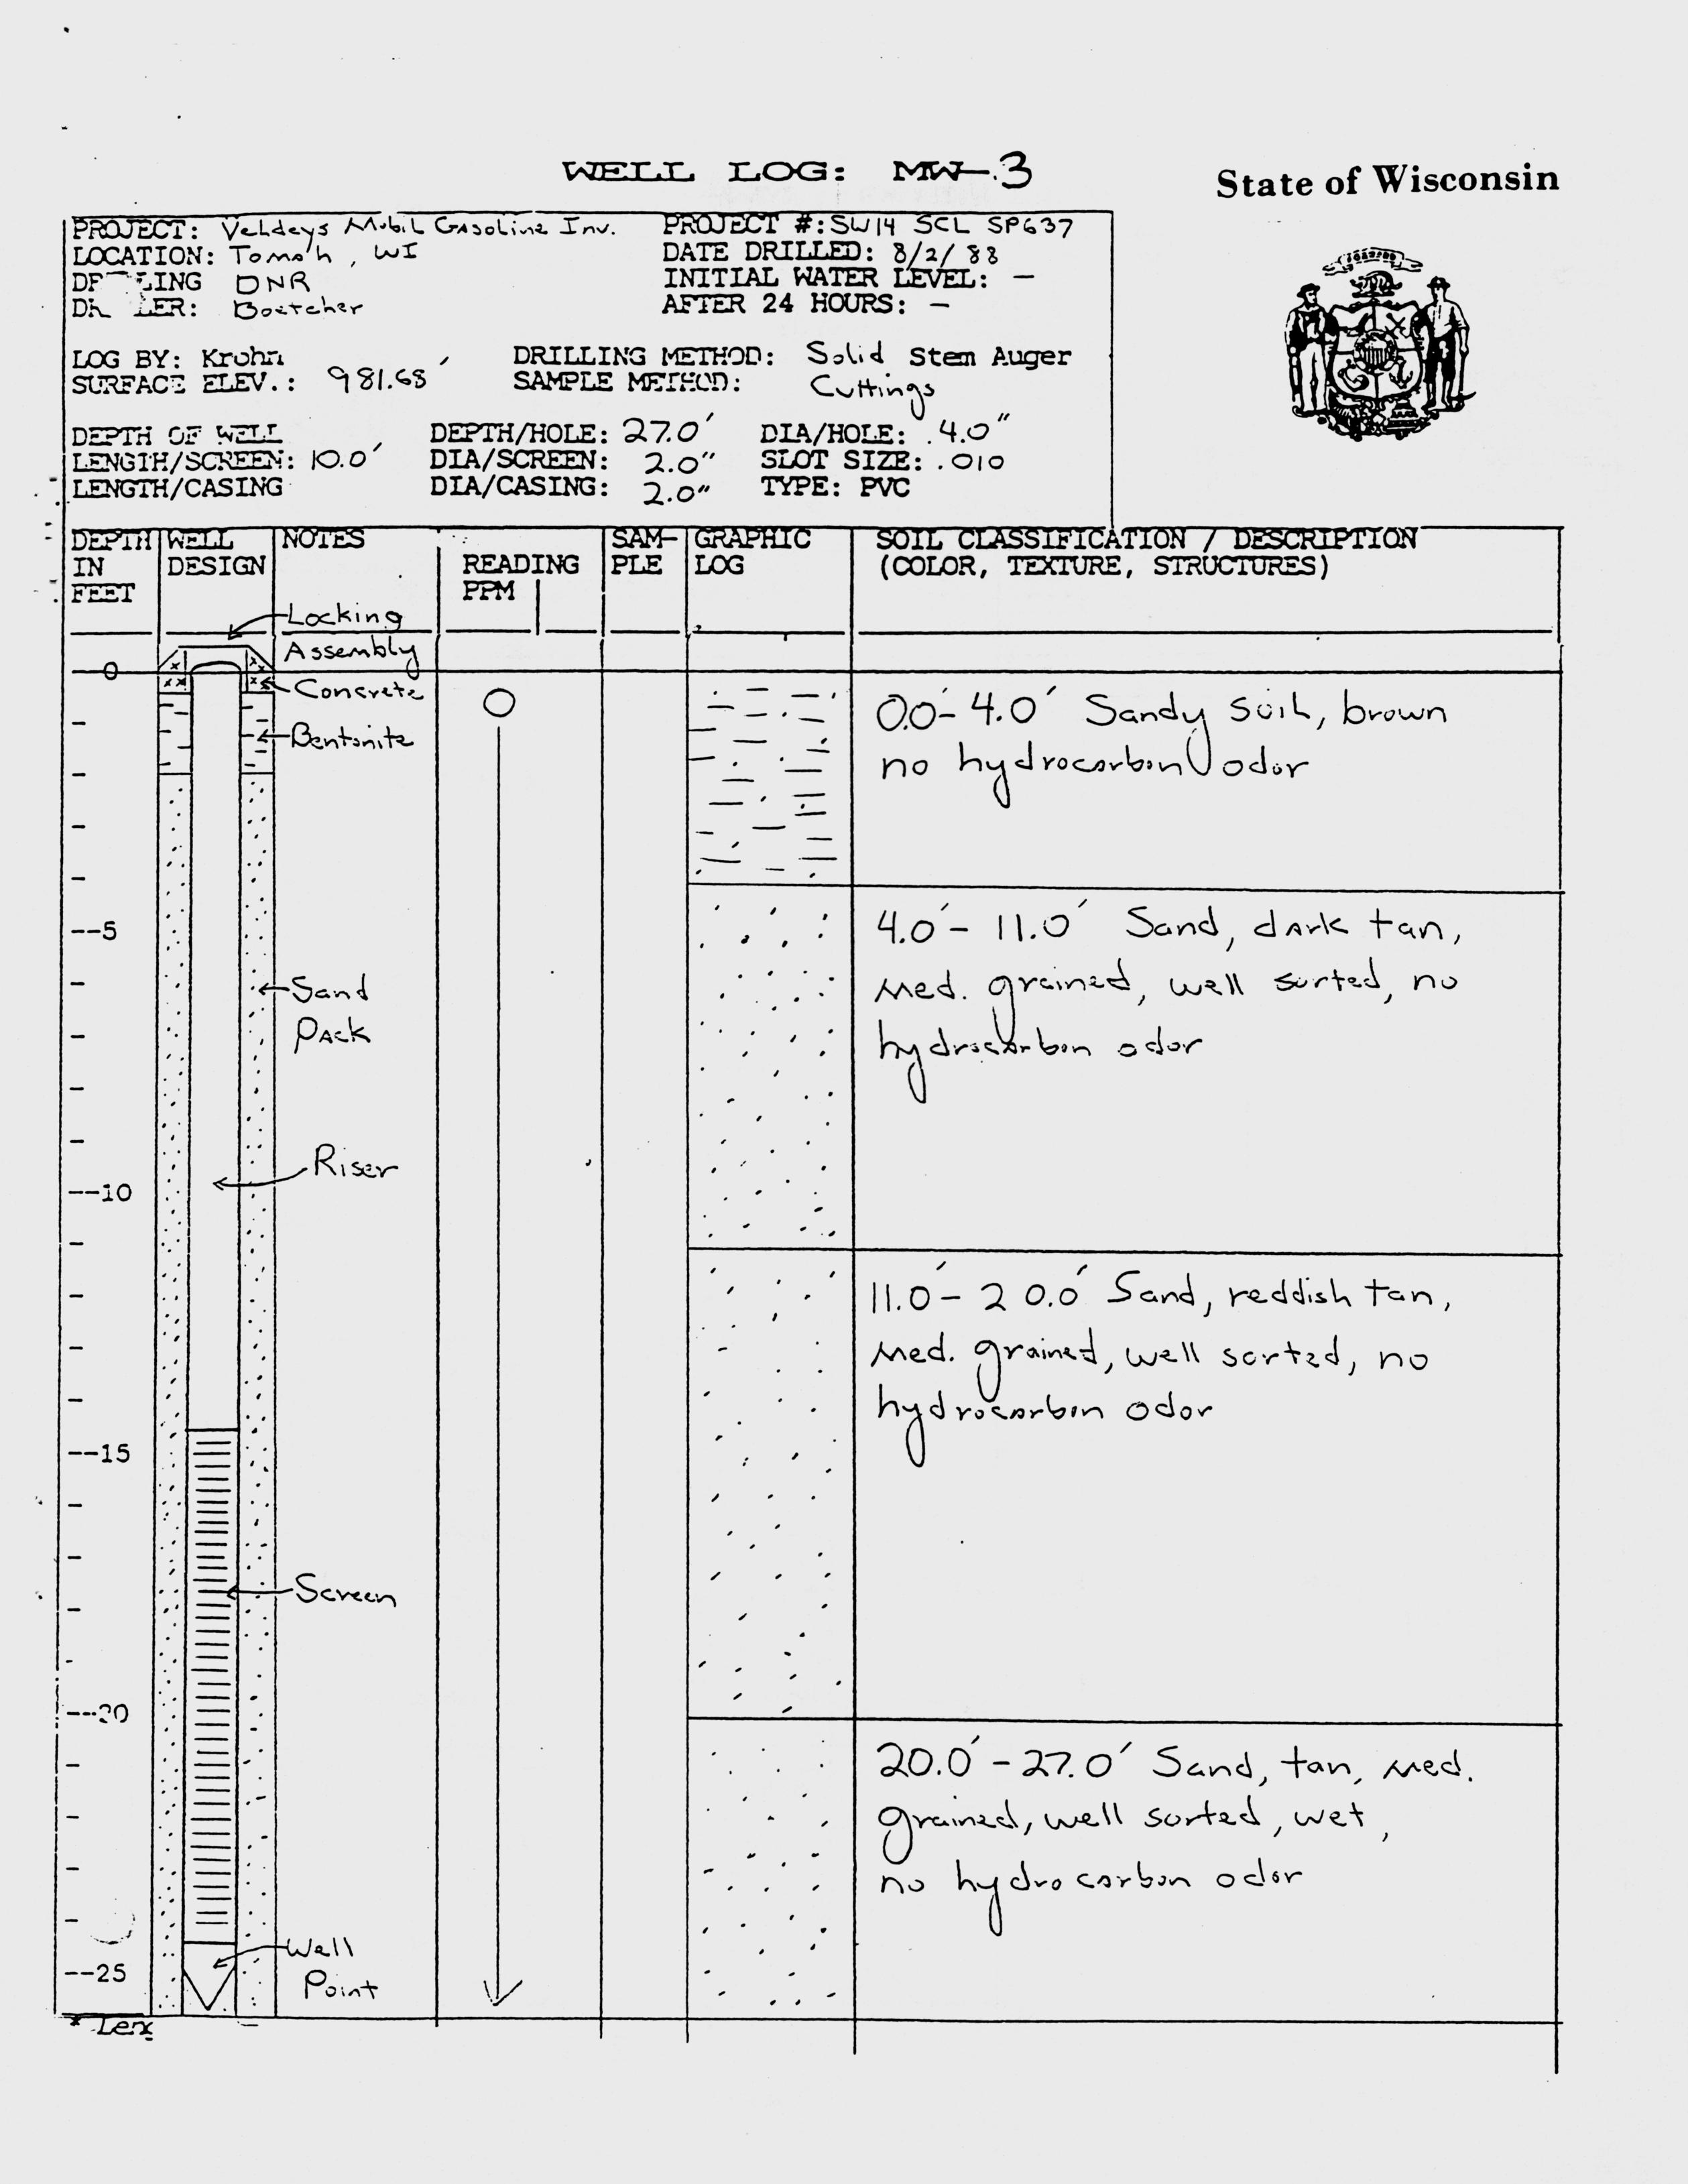 WELL LOG: MW-3
State of Wisconsin
PROJECT: Veldeys Mobil Gasoline Inv. PROJECT #: SW14 SCL SP637
LOCATION: Tomah, WI DATE DRILLED: 8/2/88
DNR INITIAL WATER LEVEL: -
Boetcher AFTER 24 HOURS: -
LOG BY: Krohn DRILLING METHOD: Solid Stem Auger
SURFACE ELEV.: 981.68' SAMPLE METHOD: Cuttings
DEPTH OF WELL DEPTH/HOLE: 27.0' DIA/HOLE: 4.0"
LENGTH/SCREEN: 10.0' DIA/SCREEN: 2.0" SLOT SIZE: .010
LENGTH/CASING DIA/CASING: 2.0" TYPE: PVC
DEPTH WELL NOTES SAM- GRAPHIC SOIL CLASSIFICATION / DESCRIPTION
IN DESIGN READING PLE LOG (COLOR, TEXTURE, STRUCTURES)
FEET PPM
Locking
Assembly
0
Concrete
0.0'-4.0' Sandy soil, brown
Bentonite
no hydrocarbon odor
--5
4.0'- 11.0' Sand, dark tan,
Sand
med. grained, well sorted, no
Pack
hydrocarbon odor
Riser
--10
11.0'- 20.0' Sand, reddish tan,
med. grained, well sorted, no
hydrocarbon odor
--15
Screen
--20
20.0'-27.0' Sand, tan, med.
grained, well sorted, wet,
no hydrocarbon odor
Well
--25
Point